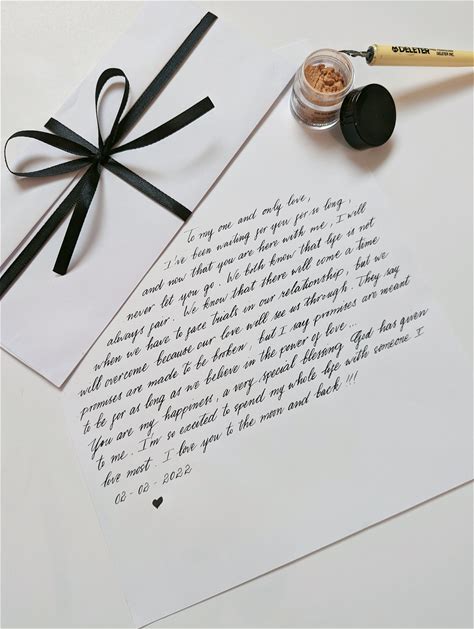 DELETER
To my one and only love,
I've been waiting for you for so long,
and now that you are here with me, I will
never let you go. We both know that life is not
always fair. We know that there will come a time
when we have to face trials in our relationship, but we
will overcome because our love will see us through. They say
promises are made to be broken, but I say promises are meant
to be for as long as we believe in the power of love...
You are my happiness, a very special blessing God has given
to me. I'm so excited to spend my whole life with someone I
love most. I love you to the moon and back!!!
02-02-2022